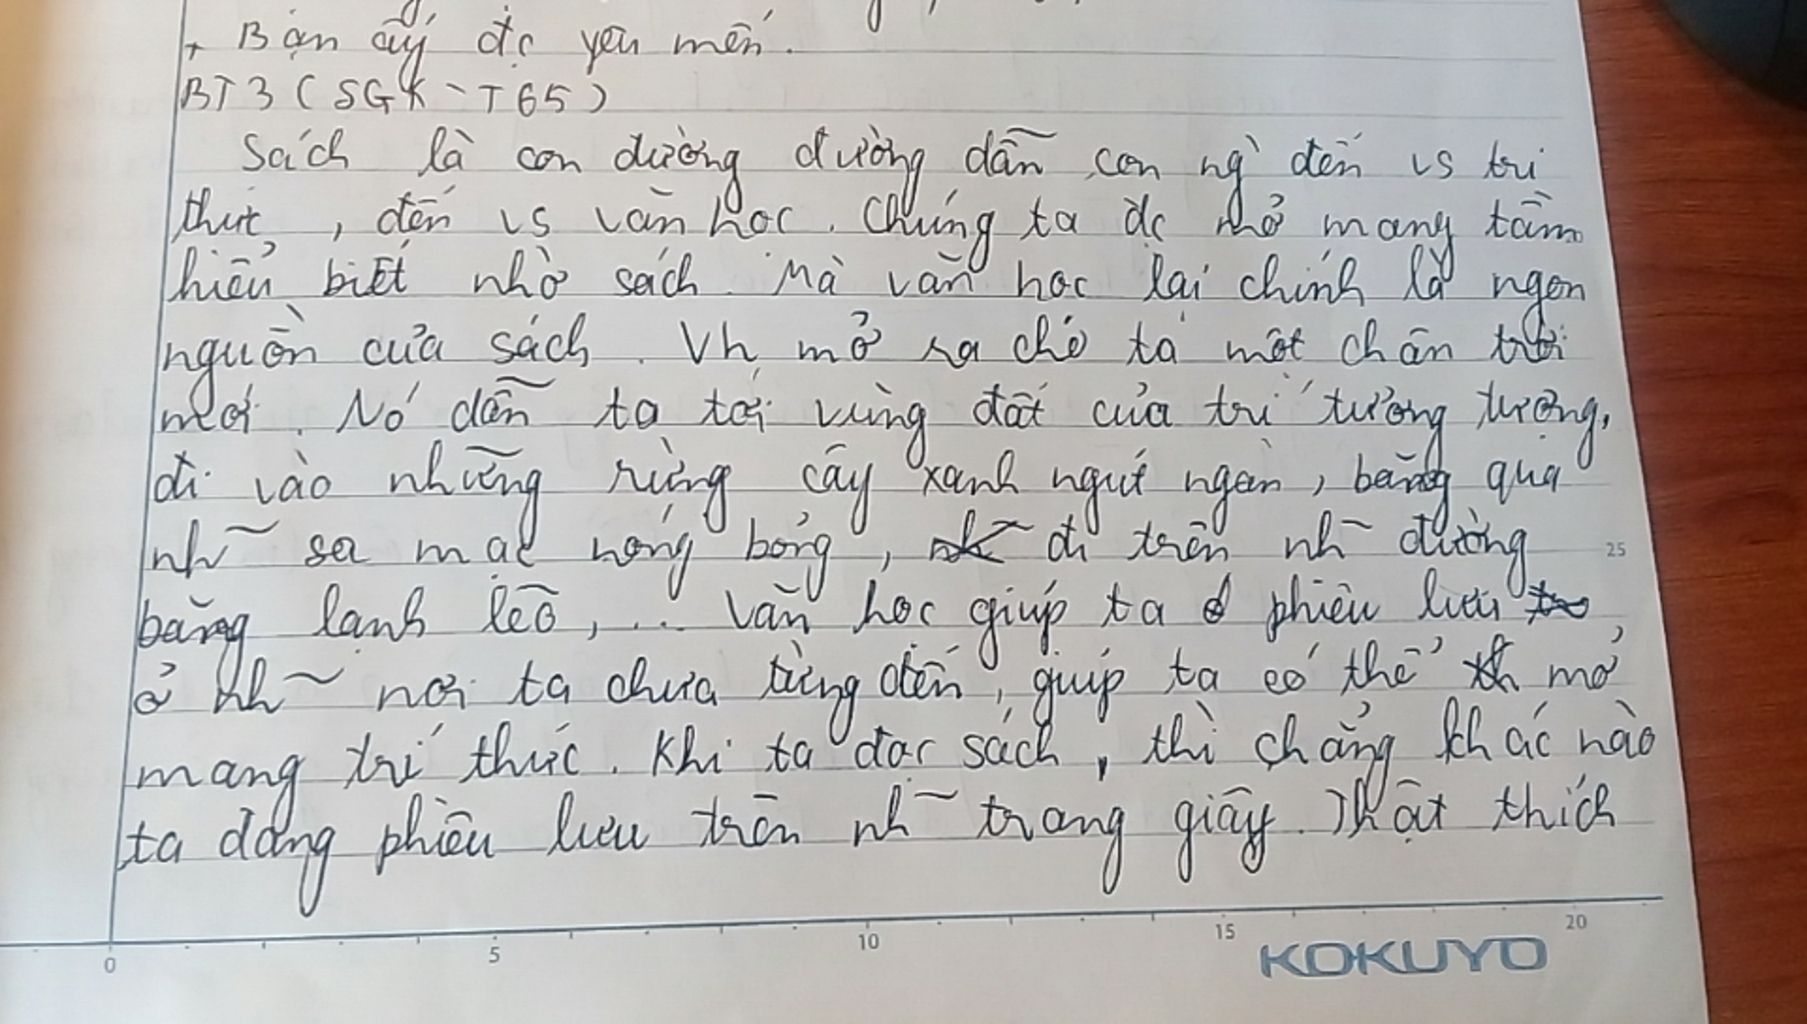 + Bạn ấy đc yêu mến.
BT3 (SGK - T65)
Sách là con đường đường dẫn con ng` đến vs tri
thức, đến vs văn học. Chúng ta đc mở mang tầm
hiểu biết nhờ sách. Mà văn học lại chính là ngọn
nguồn của sách. Vh mở ra cho ta một chân trời
mới. Nó dẫn ta tới vùng đất của trí tưởng tượng,
đi vào những rừng cây xanh ngút ngàn, băng qua
nh~ sa mạc nóng bỏng, đi trên nh~ đường
băng lạnh lẽo, ... Văn học giúp ta phiêu lưu
ở nh~ nơi ta chưa từng đến, giúp ta có thể mở
mang trí thức. Khi ta đọc sách, thì chẳng khác nào
ta đang phiêu lưu trên nh~ trang giấy. Thật thích
0 5 10 15 20
25
KOKUYO